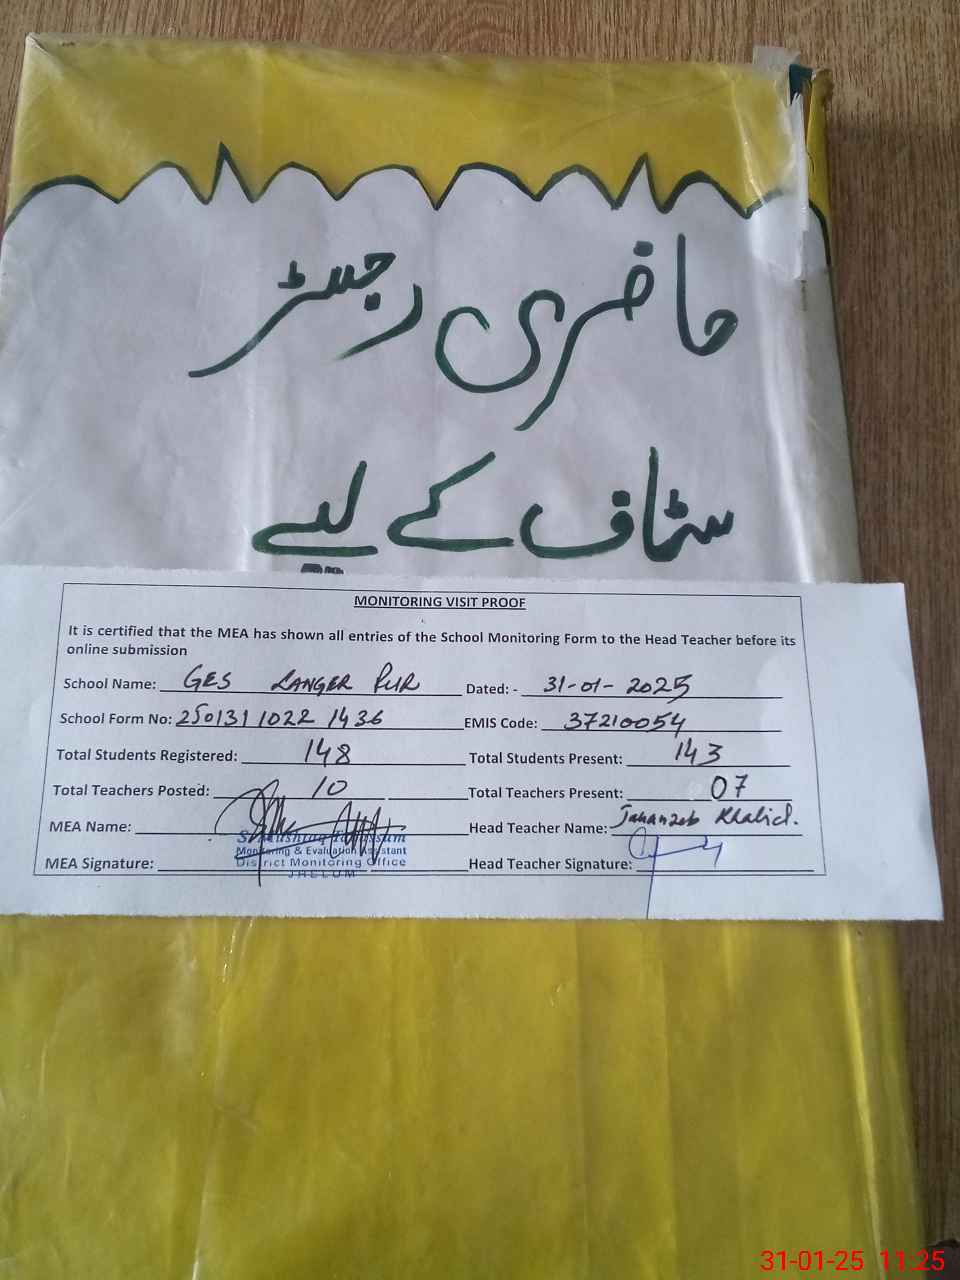 حاضری رجسٹر
سٹاف کے لیے
MONITORING VISIT PROOF
It is certified that the MEA has shown all entries of the School Monitoring Form to the Head Teacher before its
online submission
School Name: GES LANGER PUR Dated: - 31-01-2025
School Form No: 250131 1022 1436 EMIS Code: 37210054
Total Students Registered: 148 Total Students Present: 143
Total Teachers Posted: 10 Total Teachers Present: 07
MEA Name: Head Teacher Name: Jahanzeb Khalid.
Monitoring & Evaluation Assistant
MEA Signature: District Monitoring Office Head Teacher Signature:
JHELUM
31-01-25 11:25